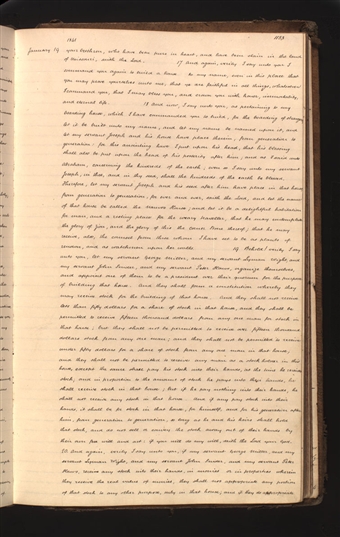 1841 1153
January 19 your brethren, who have been pure in heart, and have been slain in the land
of Missouri, saith the Lord. 17 And again, verily I say unto you I
command you again to build a house to my name, even in this place that
you may prove yourselves unto me, that ye are faithful in all things, whatsoever
I command you, that I may bless you, and crown you with honor, immortality,
and eternal life. 18 And now, I say unto you, as pertaining to my
boarding house, which I have commanded you to build, for the boarding of strangers,
let it be built unto my name, and let my name be named upon it, and
let my servant Joseph and his house have place therein, from generation to
generation: for this anointing have I put upon his head, that his blessing
shall also be put upon the head of his posterity after him; and as I said unto
Abraham, concerning the kindreds of the earth, even so I say unto my servant
Joseph, in thee, and in thy seed, shall the kindreds of the earth be blessed.
Therefore, let my servant Joseph and his seed after him have place in that house
from generation to generation, for ever and ever, saith the Lord, and let the name
of that house be called the Nauvoo House, and let it be a delightful habitation
for man, and a resting place for the weary traveller, that he may contemplate
the glory of Zion, and the glory of this the corner stone thereof; that he may
receive, also, the counsel from those whom I have set to be as plants of
renown, and as watchmen upon her walls. 19 Behold! verily I say
unto you, let my servant George Miller, and my servant Lyman Wight, and
my servant John Snider, and my servant Peter Haws, organize themselves,
and appoint one of them to be a president over their quorum for the purpose
of building that house. And they shall form a constitution whereby they
may receive stock for the building of that house. And they shall not receive
less than fifty dollars for a share of stock in that house, and they shall be
permitted to receive fifteen thousand dollars from any one man for stock in
that house; but they shall not be permitted to receive over fifteen thousand
dollars stock from any one man; and they shall not be permitted to receive
under fifty dollars for a share of stock from any one man in that house,
and they shall not be permitted to receive any man as a stock holder in this
house, except the same shall pay his stock into their hands, at the time he receives
stock, and in proportion to the amount of stock he pays into their hands, he
shall receive stock in that house; but if he pay nothing into their hands, he
shall not receive any stock in that house. And if any pay stock into their
hands, it shall be for stock in that house, for himself, and for his generation after
him, from generation to generation, so long as he and his heirs shall hold
that stock, and do not sell or convey the stock away out of their hands by
their own free will and act: if you will do my will, saith the Lord your God.
20 And again, verily, I say unto you, if my servant George Miller, and my
servant Lyman Wight, and my servant John Snider, and my servant Peter
Haws, receive any stock into their hands, in monies or in properties wherein
they receive the real value of monies, they shall not appropriate any portion
of that stock to any other purpose, only in that house; and if they do appropriate